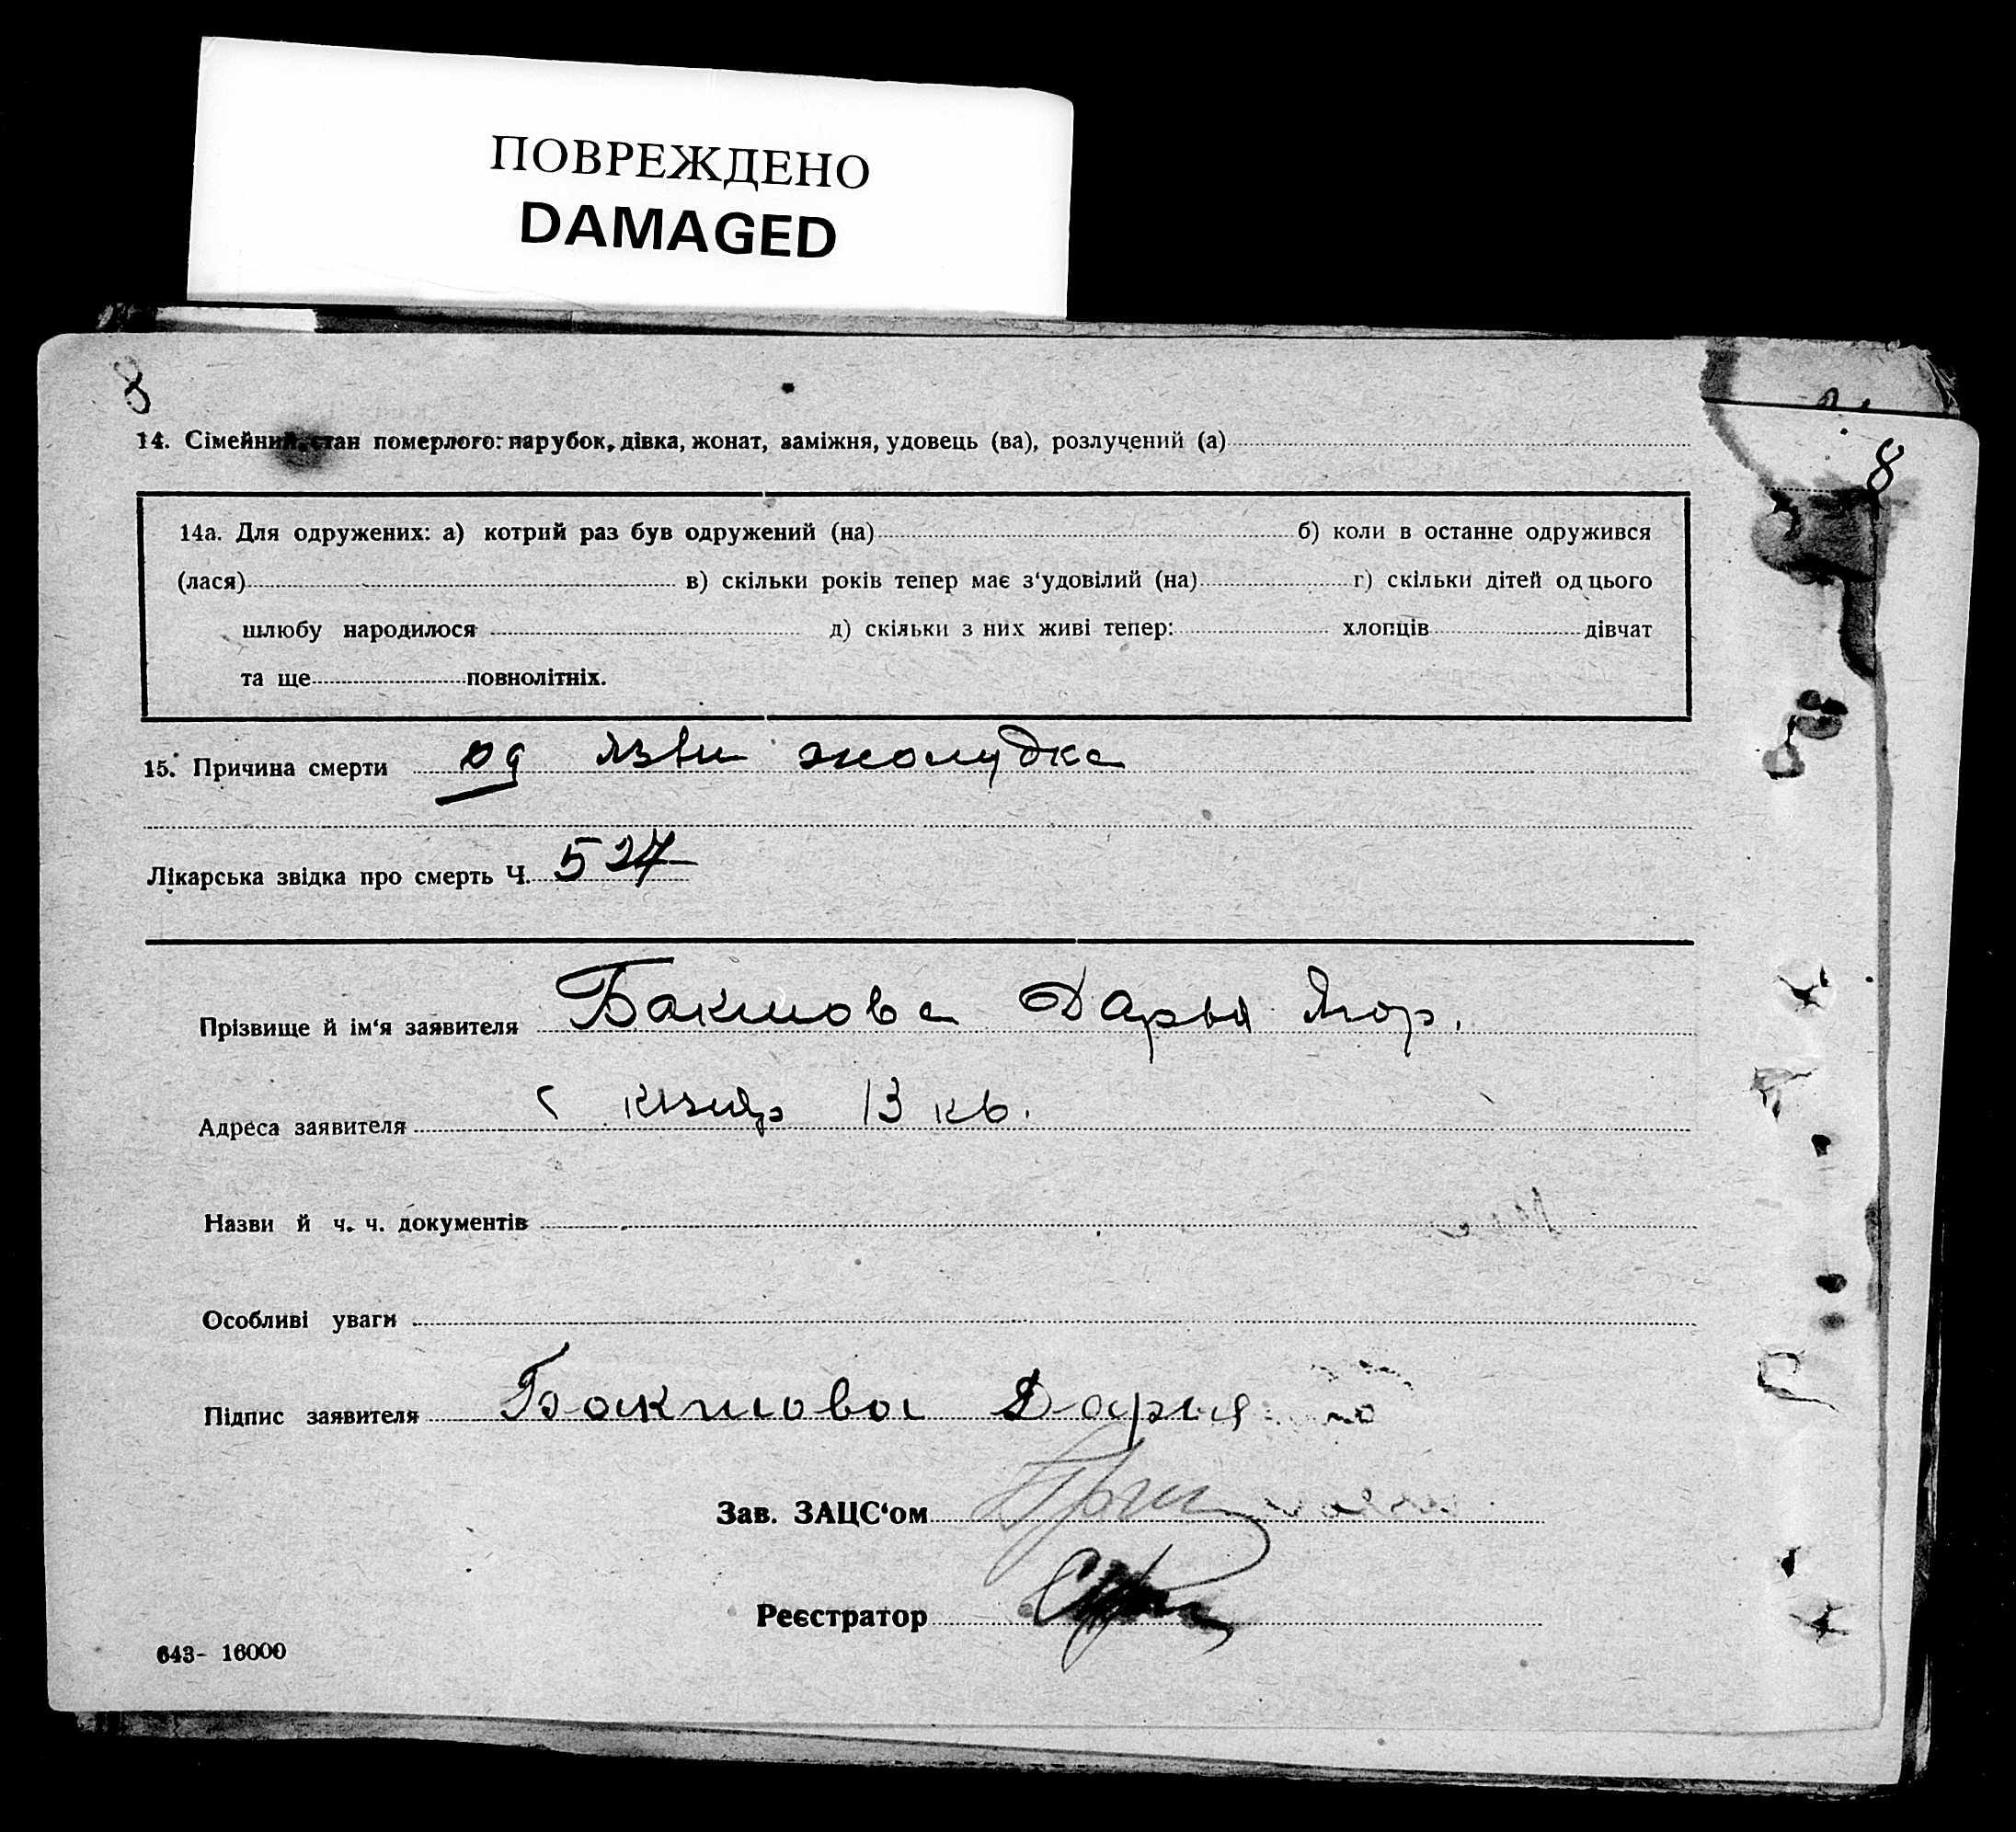 ПОВРЕЖДЕНО
DAMAGED
8
8
14. Сімейний стан померлого: парубок, дівка, жонат, заміжня, удовець (ва), розлучений (а)
14а. Для одружених: а) котрий раз був одружений (на) б) коли в останне одружився
(лася) в) скільки років тепер має з‘удовілий (на) г) скільки дітей од цього
шлюбу народилося д) скільки з них живі тепер: хлопців дівчат
та ще повнолітніх.
15. Причина смерти од язви жолудка
Лікарська звідка про смерть Ч. 527
Прізвище й ім‘я заявителя Бакшова Дарья
Адреса заявителя 13 кв.
Назви й ч. ч. документів
Особливі уваги
Підпис заявителя Бакшова Дарья
Зав. ЗАЦС‘ом
Реєстратор
643- 16000